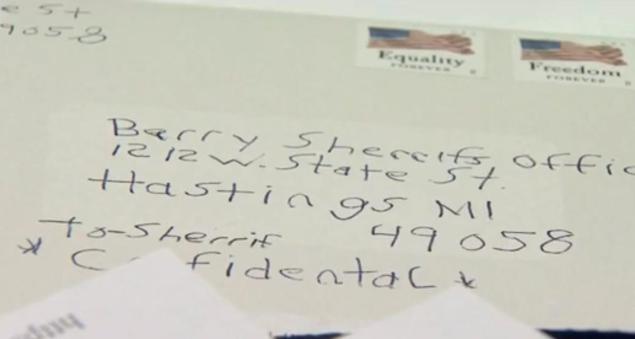 e St
49058
Equality
FOREVER
Freedom
FOREVER
Barry Sherrifs Offic
1212 W. State St.
Hastings MI
49058
To-Sherrif
* C fidental *
https